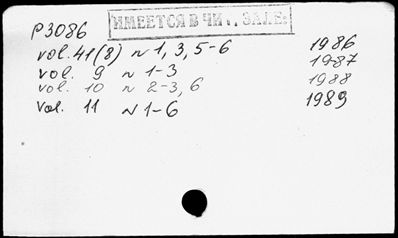 P3086
ИМЕЕТСЯ В ЧИТ. ЗАЛЕ
vol. 41(8) N 1, 3, 5-6 1986
vol. 9 N 1-3 1987
vol. 10 N 2-3, 6 1988
vol. 11 N 1-6 1989